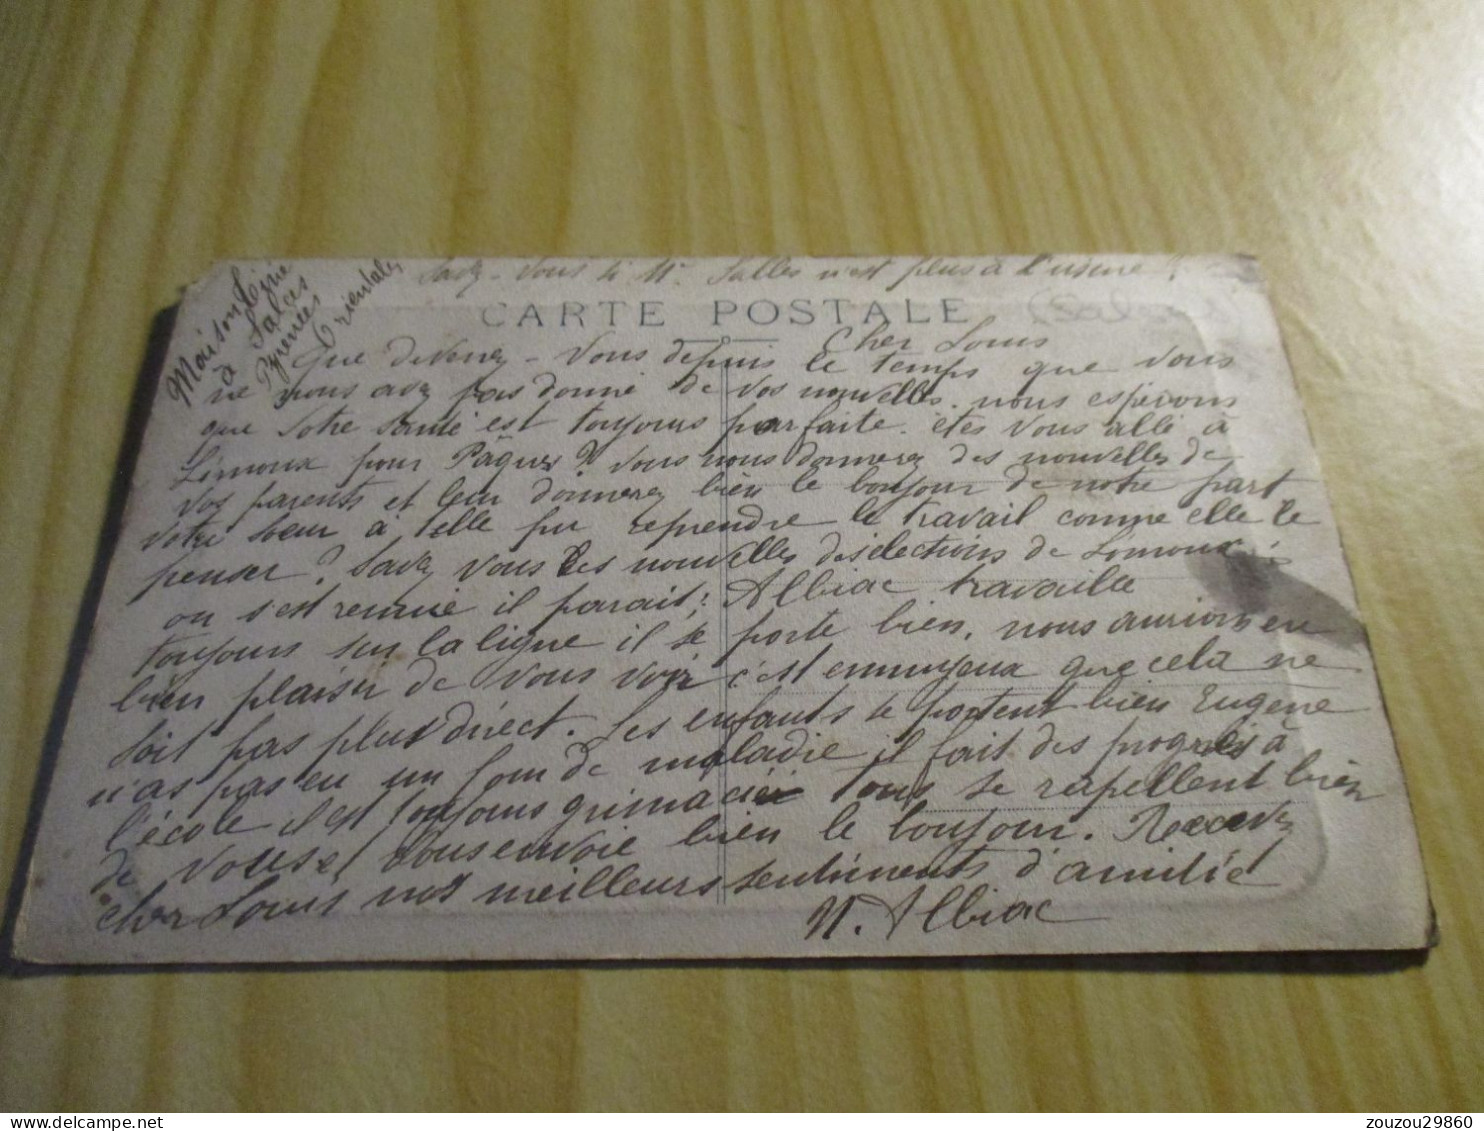 Maison
à Salces
Pyrénées
Orientales
Savez-Vous si Mr Salles n'est plus à l'usine ?
CARTE POSTALE
Cher Louis
Que devenez-Vous depuis le temps que vous
ne nous avez pas donné de vos nouvelles. nous espérons
que votre santé est toujours parfaite. êtes Vous allé à
Limoux pour Pâques? Vous nous donnerez des nouvelles de
vos parents et leur donnerez bien le bonjour de notre part
votre soeur à telle pu reprendre le travail comme elle le
penser? Savez Vous les nouvelles des élections de Limoux
on s'est remué il parait; Albiac travaille
toujours sur la ligne il se porte bien, nous aurions eu
bien plaisir de vous voir c'est ennuyeux que cela ne
soit pas plus direct. Les enfants se portent bien Eugène
n'as pas eu un jour de maladie il fait des progrès à
l'école il est toujours grimacier tous se rapellent bien
de vous et vous envoie bien le bonjour. Recevez
cher Louis nos meilleurs sentiments d'amitié
N. Albiac
zouzou29860